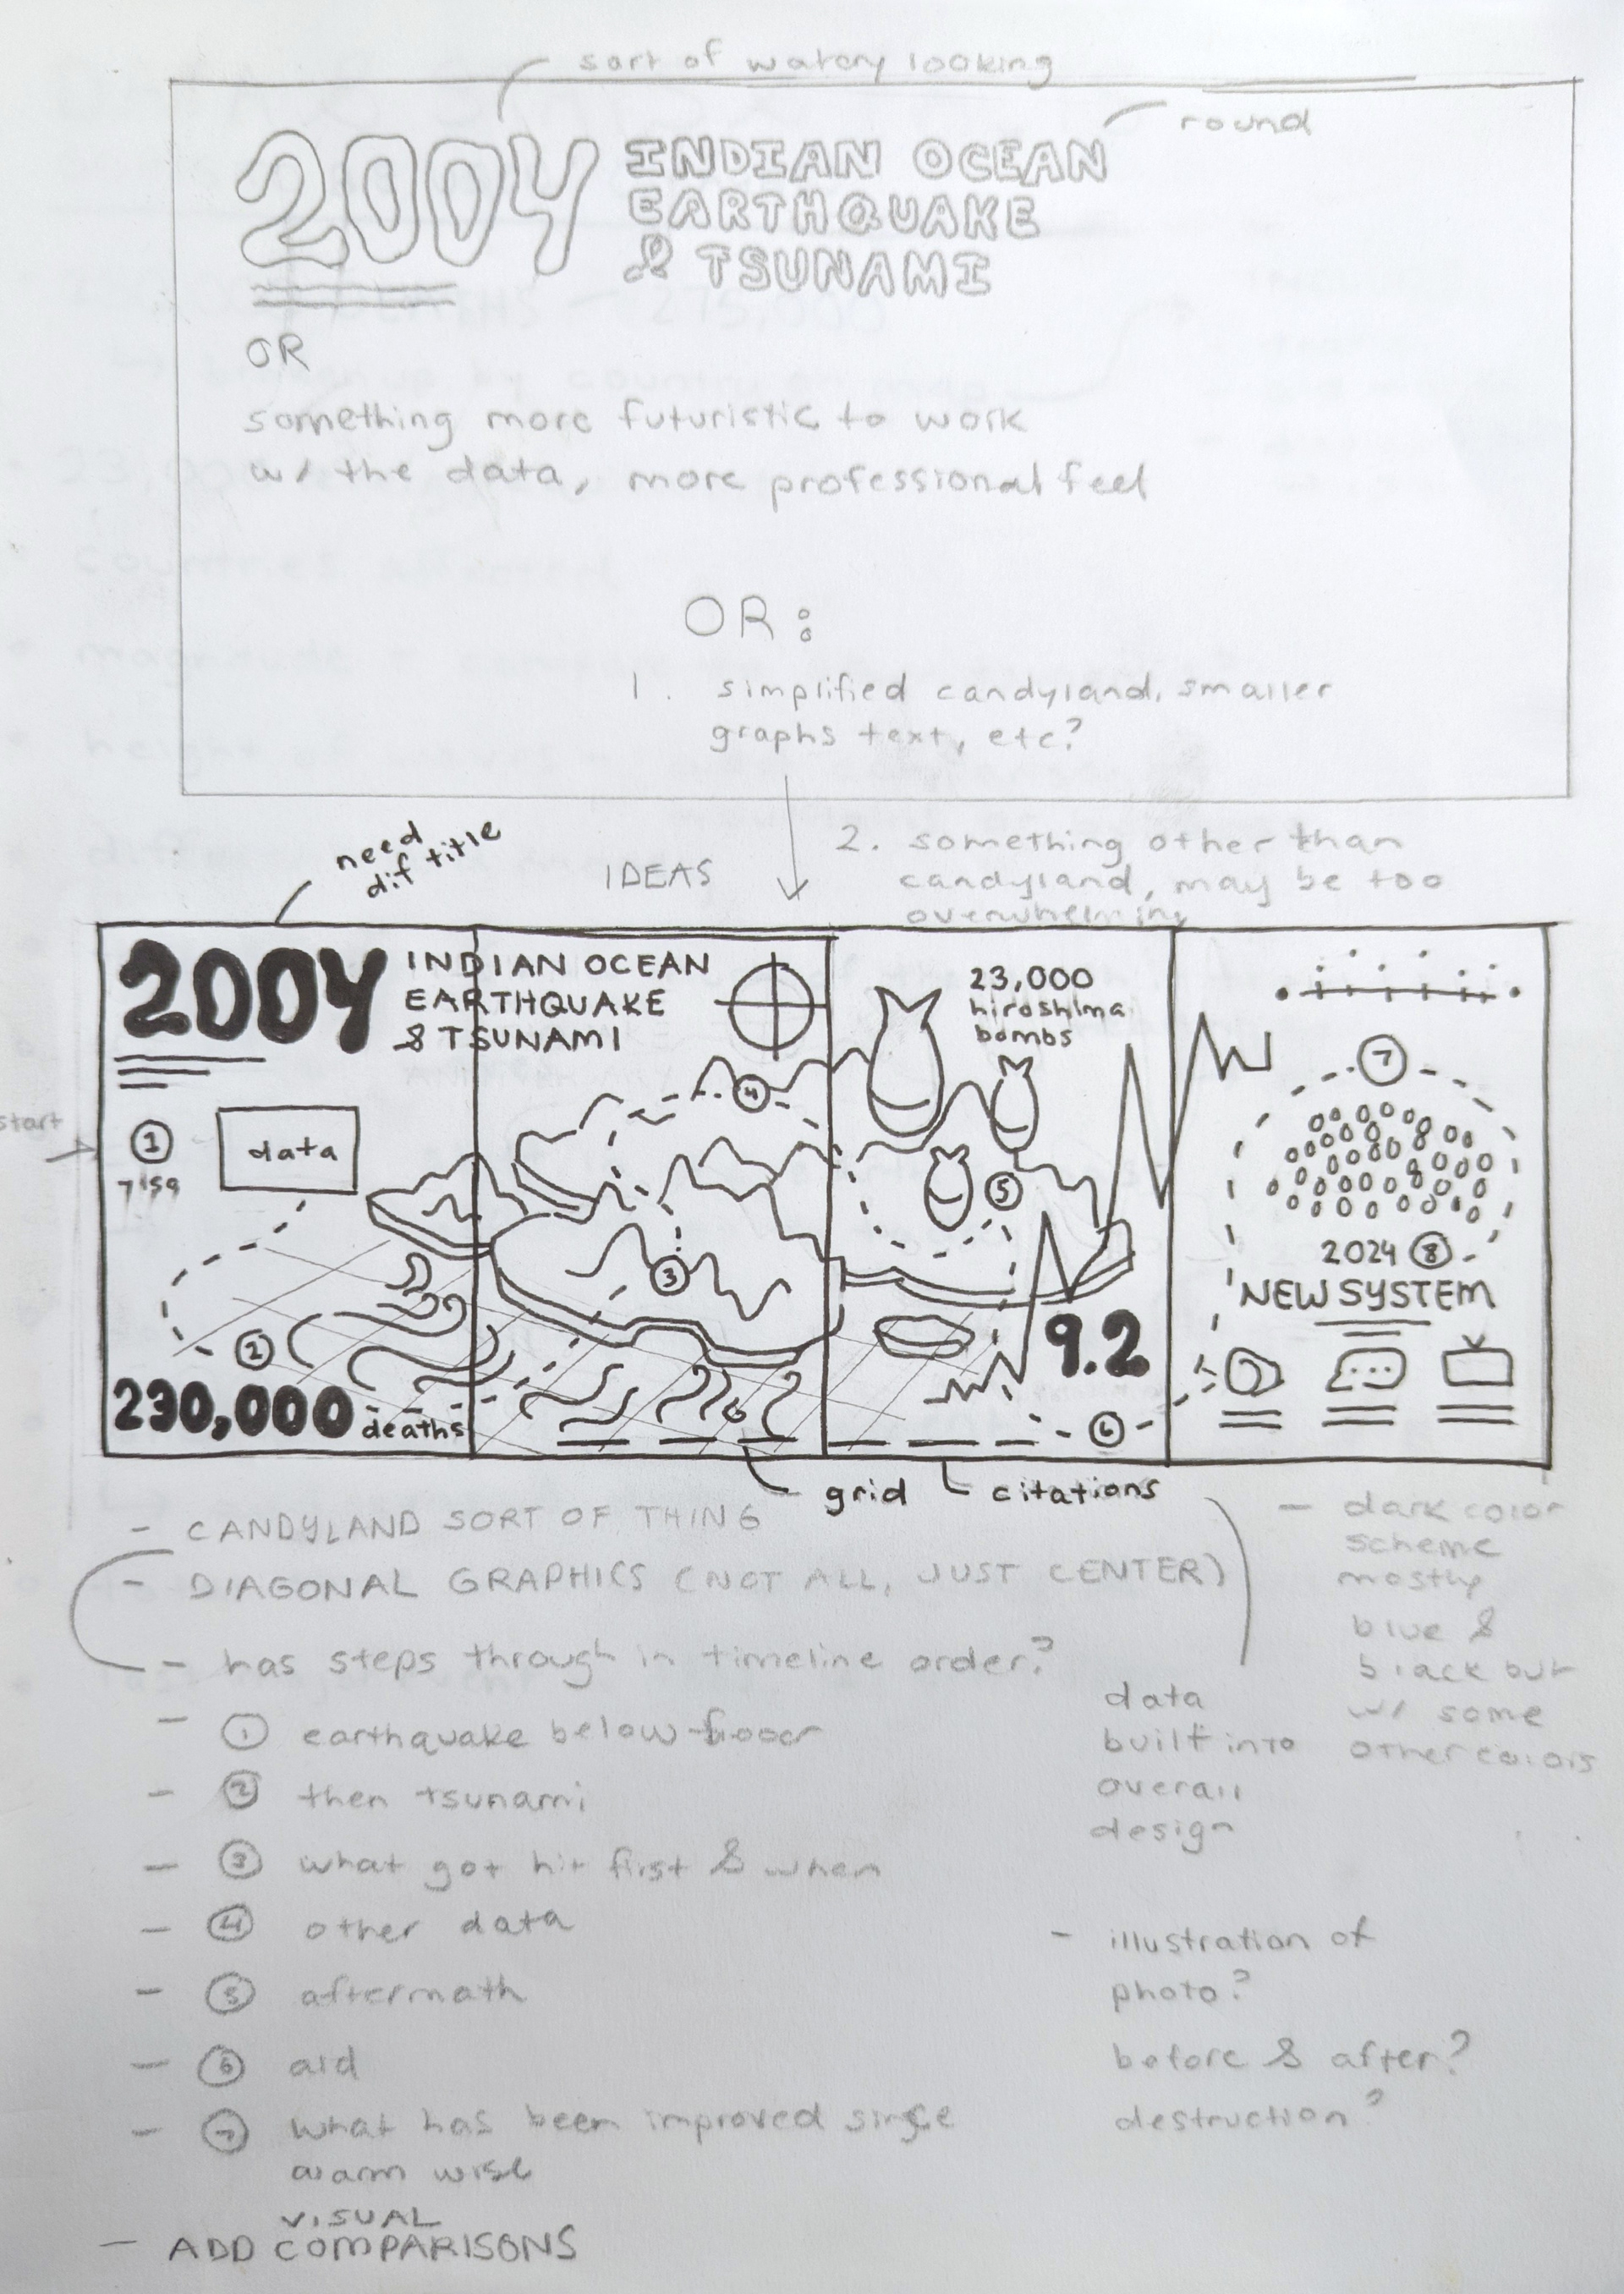 sort of watery looking
round
2004 INDIAN OCEAN
EARTHQUAKE
& TSUNAMI
OR
something more futuristic to work
w/ the data, more professional feel
OR:
1. simplified candyland, smaller
graphs text, etc?
need
dif title
IDEAS
2. something other than
candyland, may be too
overwhelming
2004 INDIAN OCEAN
EARTHQUAKE
& TSUNAMI
23,000
hiroshima
bombs
start
1
7:59
data
2
230,000 deaths
3
4
5
9.2
6
7
2024 8
NEW SYSTEM
grid
citations
- CANDYLAND SORT OF THING
- DIAGONAL GRAPHICS (NOT ALL, JUST CENTER)
- has steps through in timeline order?
- 1 earthquake below floor
- 2 then tsunami
- 3 what got hit first & when
- 4 other data
- 5 aftermath
- 6 aid
- 7 what has been improved since
alarm wise
VISUAL
- ADD COMPARISONS
data
built into
overall
design
- dark color
scheme
mostly
blue &
black but
w/ some
other colors
- illustration of
photo?
before & after?
destruction?